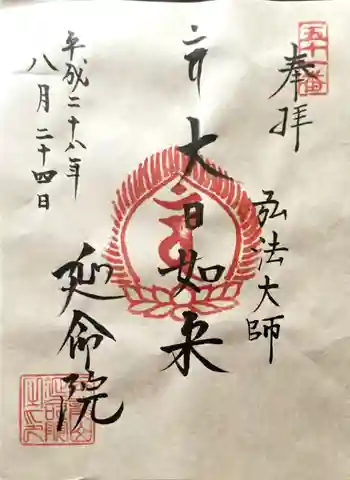 五十一番
奉拝
弘法大師
大日如来
平成二十八年
八月二十四日
延命院